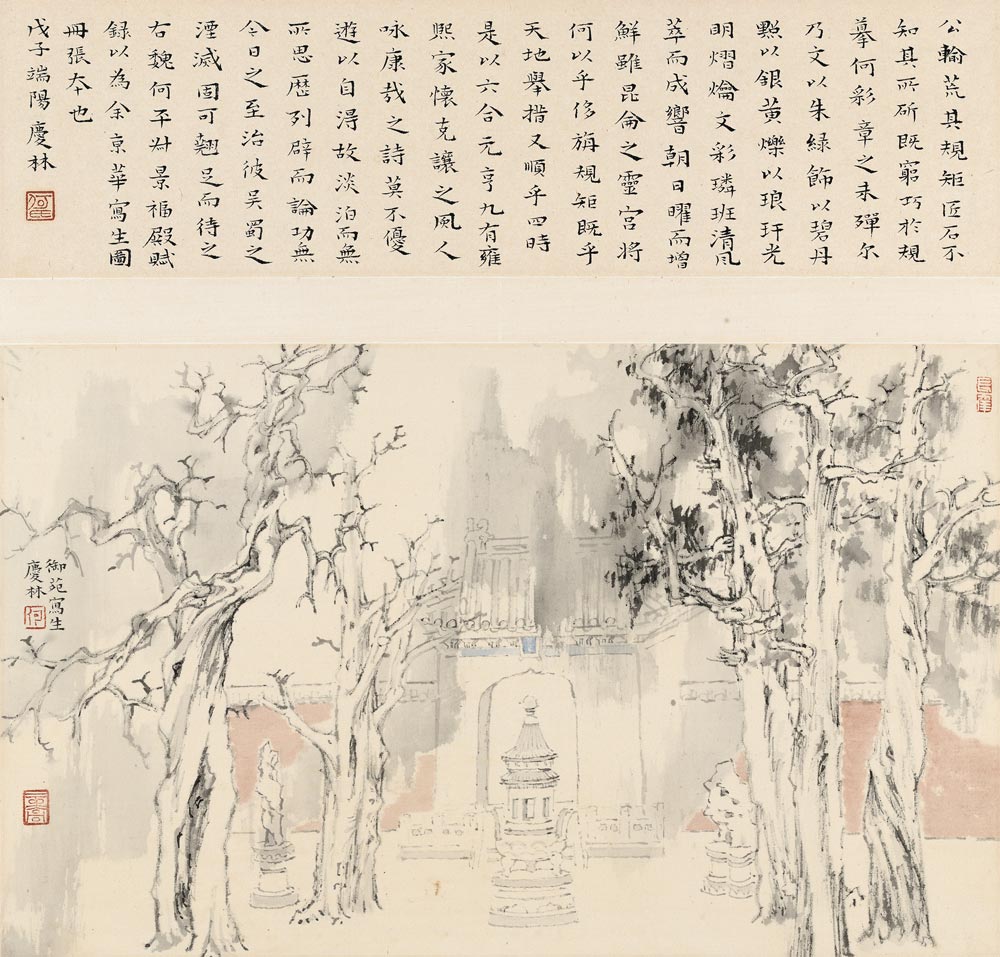 公輸荒其規矩匠石不
知其所斫既窮巧於規
摹何彩章之未殫尔
乃文以朱綠飾以碧丹
點以銀黃爍以琅玕光
明熠爚文彩璘班清風
萃而成響朝日曜而增
鮮雖昆侖之靈宮將
何以乎侈旃規矩既乎
天地舉措又順乎四時
是以六合元亨九有雍
熙家懷克讓之風人
咏康哉之詩莫不優
遊以自淂故淡泊而無
所思歷列辟而論功無
今日之至治彼吳蜀之
湮滅固可翹足而待之
右魏何平叔景福殿賦
録以為余京華寫生圖
冊張本也
戊子端陽慶林
御苑寫生
慶林
何